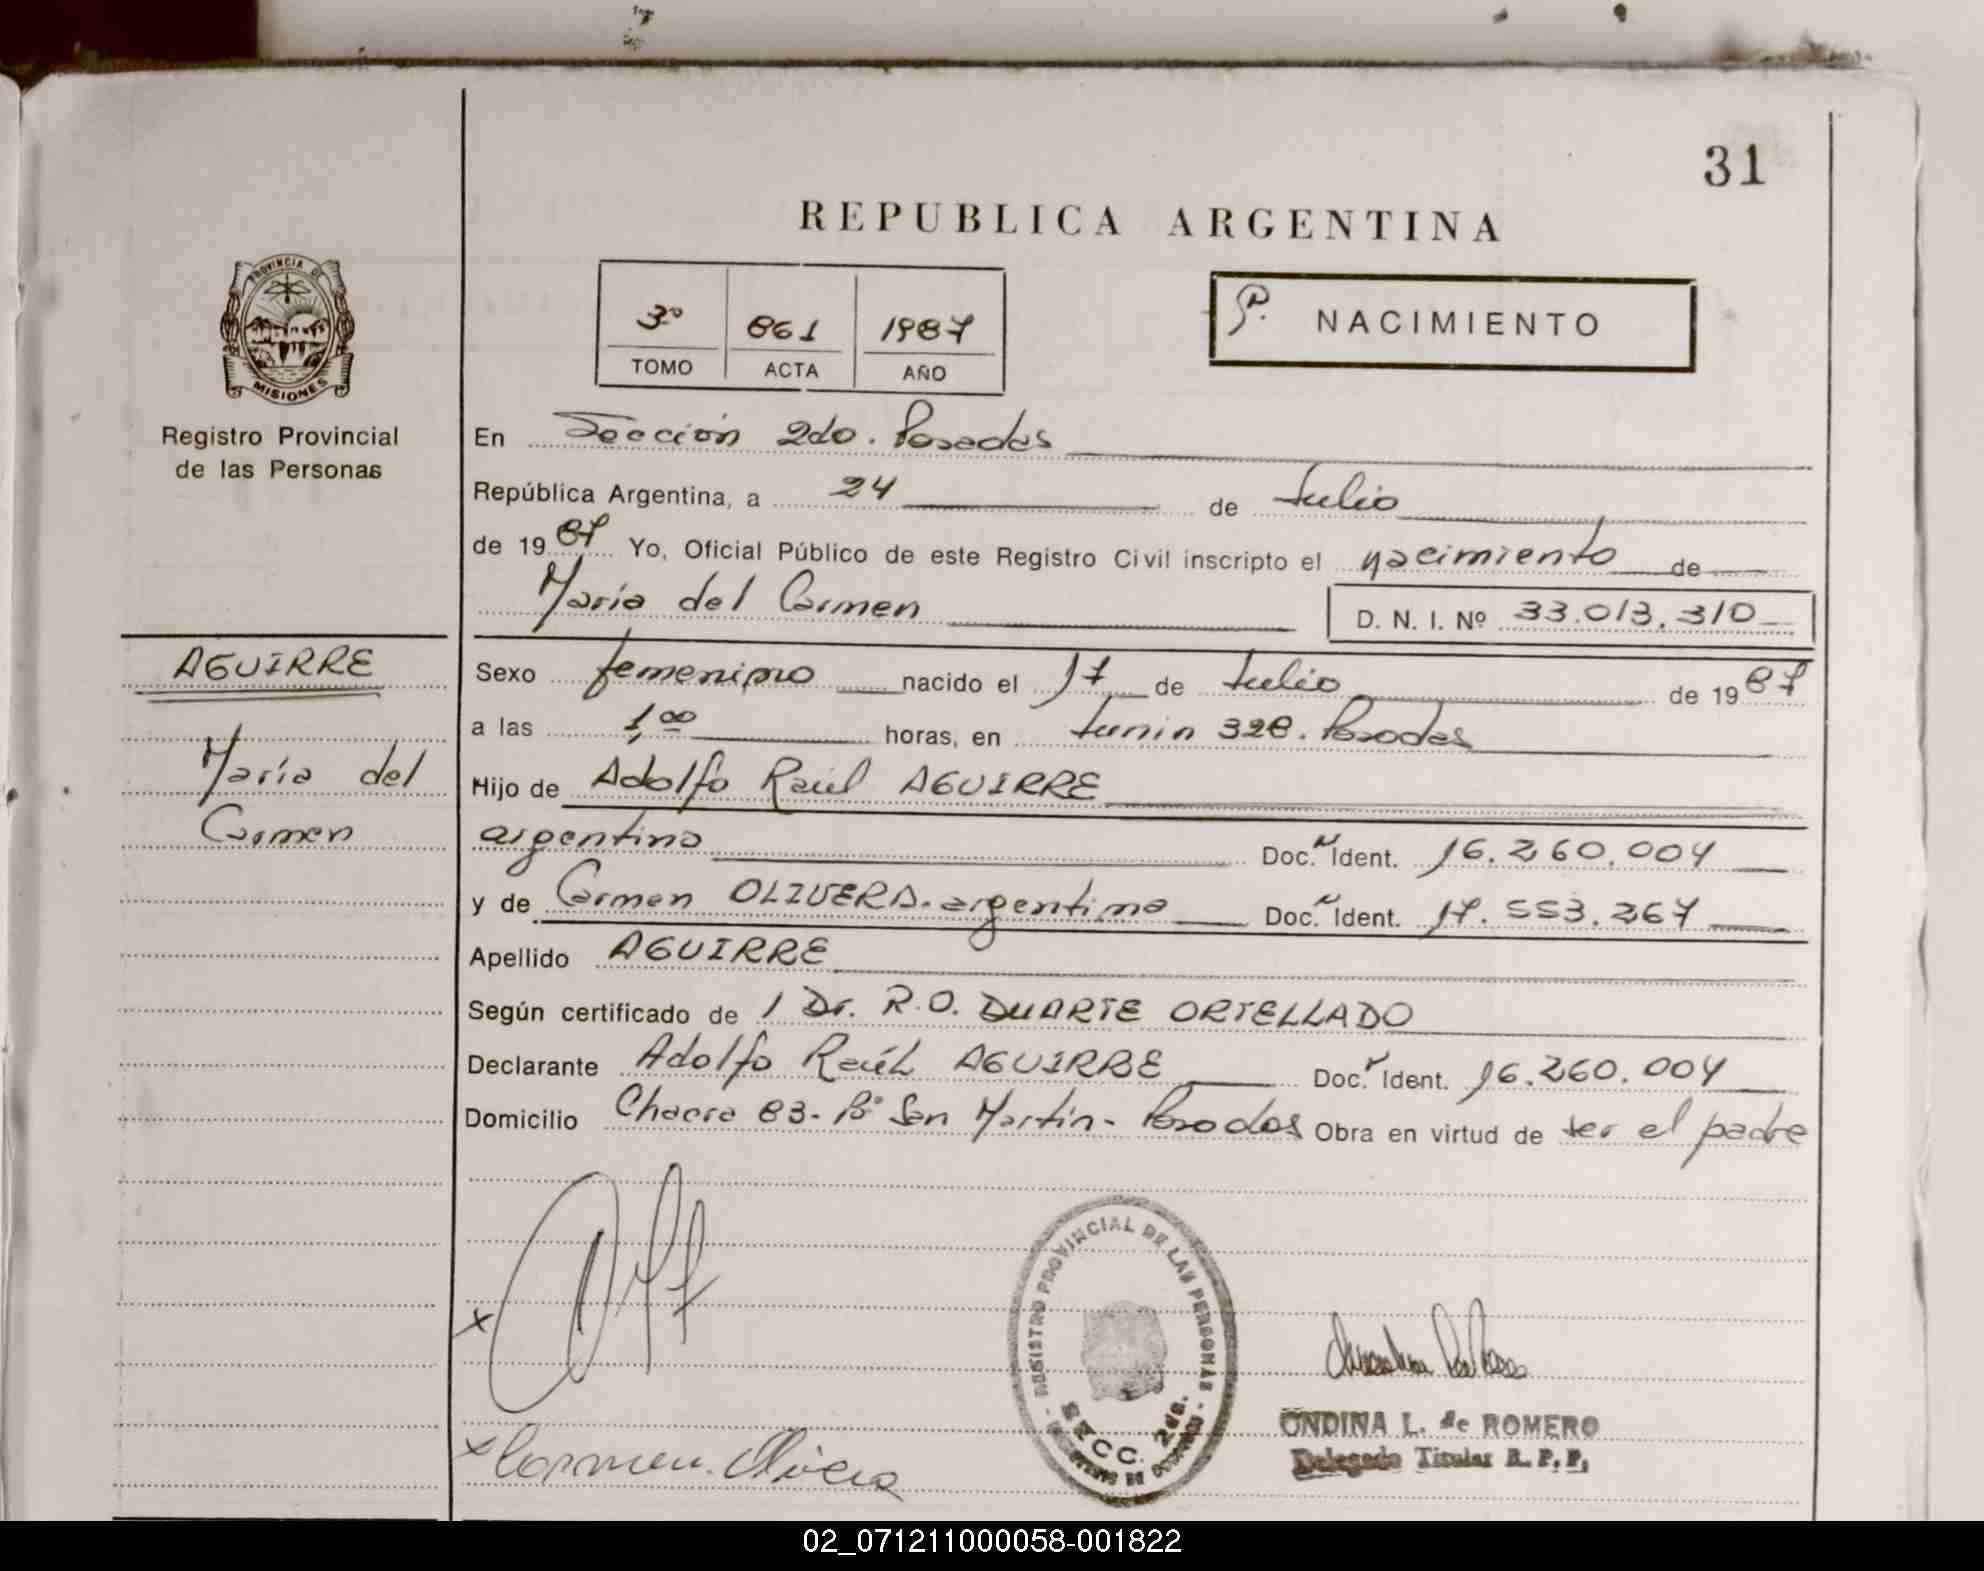 31
REPUBLICA ARGENTINA
PROVINCIA DE
MISIONES
Registro Provincial
de las Personas
3º 861 1987
TOMO ACTA AÑO
NACIMIENTO
En Sección 2da. Posadas
República Argentina, a 24 de Julio
de 1987 Yo, Oficial Público de este Registro Civil inscripto el nacimiento de
María del Carmen D. N. I. Nº 33.013.310
AGUIRRE
María del
Carmen
Sexo femenino nacido el 17 de Julio de 1987
a las 1,00 horas, en Junín 328. Posadas
Hijo de Adolfo Raúl AGUIRRE
argentino Doc. N Ident. 16.260.004
y de Carmen OLIVERA. argentina Doc. N Ident. 17.553.267
Apellido AGUIRRE
Según certificado de l Dr. R.O. DUARTE ORTELLADO
Declarante Adolfo Raúl AGUIRRE Doc. N Ident. 16.260.004
Domicilio Chacra 83- Bº San Martín- Posadas Obra en virtud de ser el padre
REGISTRO PROVINCIAL DE LAS PERSONAS
SECC. 2da.
x
x Carmen Olivera
ONDINA L. de ROMERO
Delegada Titular R. P. P.
02_071211000058-001822